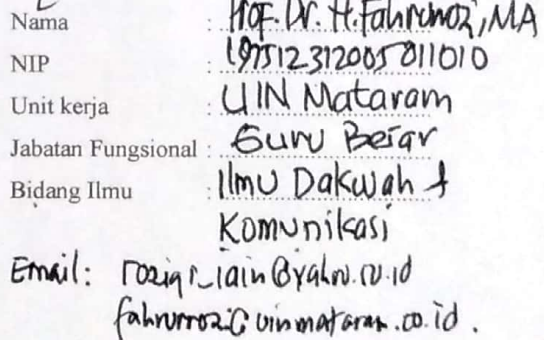 Nama : Prof. Dr. H. Fahrurrozi, MA
NIP : 197512312005011010
Unit kerja : UIN Mataram
Jabatan Fungsional : Guru Besar
Bidang Ilmu : Ilmu Dakwah &
Komunikasi
Email:
fahrurrozi@uinmataram.co.id.